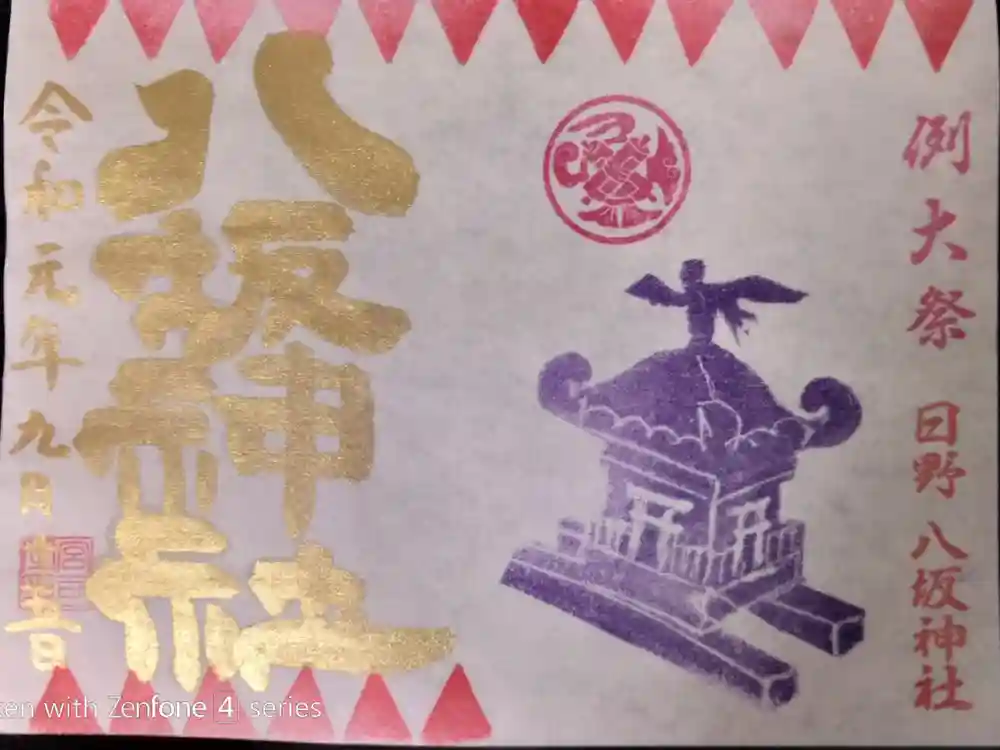 例大祭 日野 八坂神社
八坂神社
令和元年九月吉日
ken with Zenfone 4 series